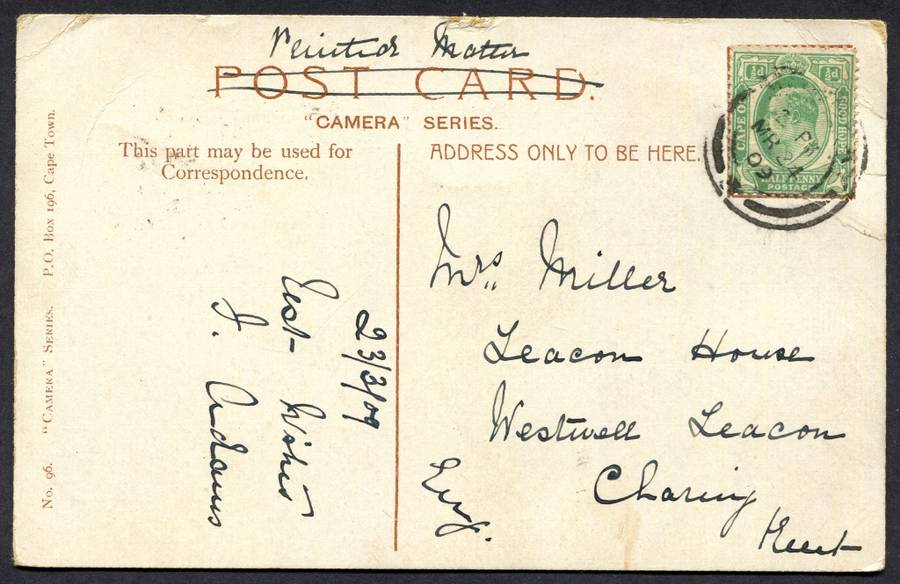 Printed Matter
POST CARD.
"CAMERA" SERIES.
This part may be used for
Correspondence.
ADDRESS ONLY TO BE HERE.
No. 96. "CAMERA" SERIES. P.O. Box 196, Cape Town.
23/3/09
Best Wishes
J. Adams
Mrs. Miller
Leacon House
Westwell Leacon
Charing
Kent
Eng.
½d ½d
CAPE OF GOOD HOPE
HALF PENNY
POSTAGE
PM
MR 24
09